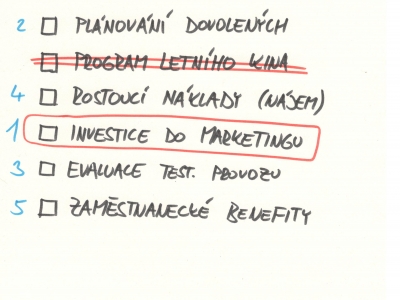 2 PLÁNOVÁNÍ DOVOLENÝCH
PROGRAM LETNÍHO KINA
4 ROSTOUCÍ NÁKLADY (NÁJEM)
1 INVESTICE DO MARKETINGU
3 EVALUACE TEST. PROVOZU
5 ZAMĚSTNANECKÉ BENEFITY